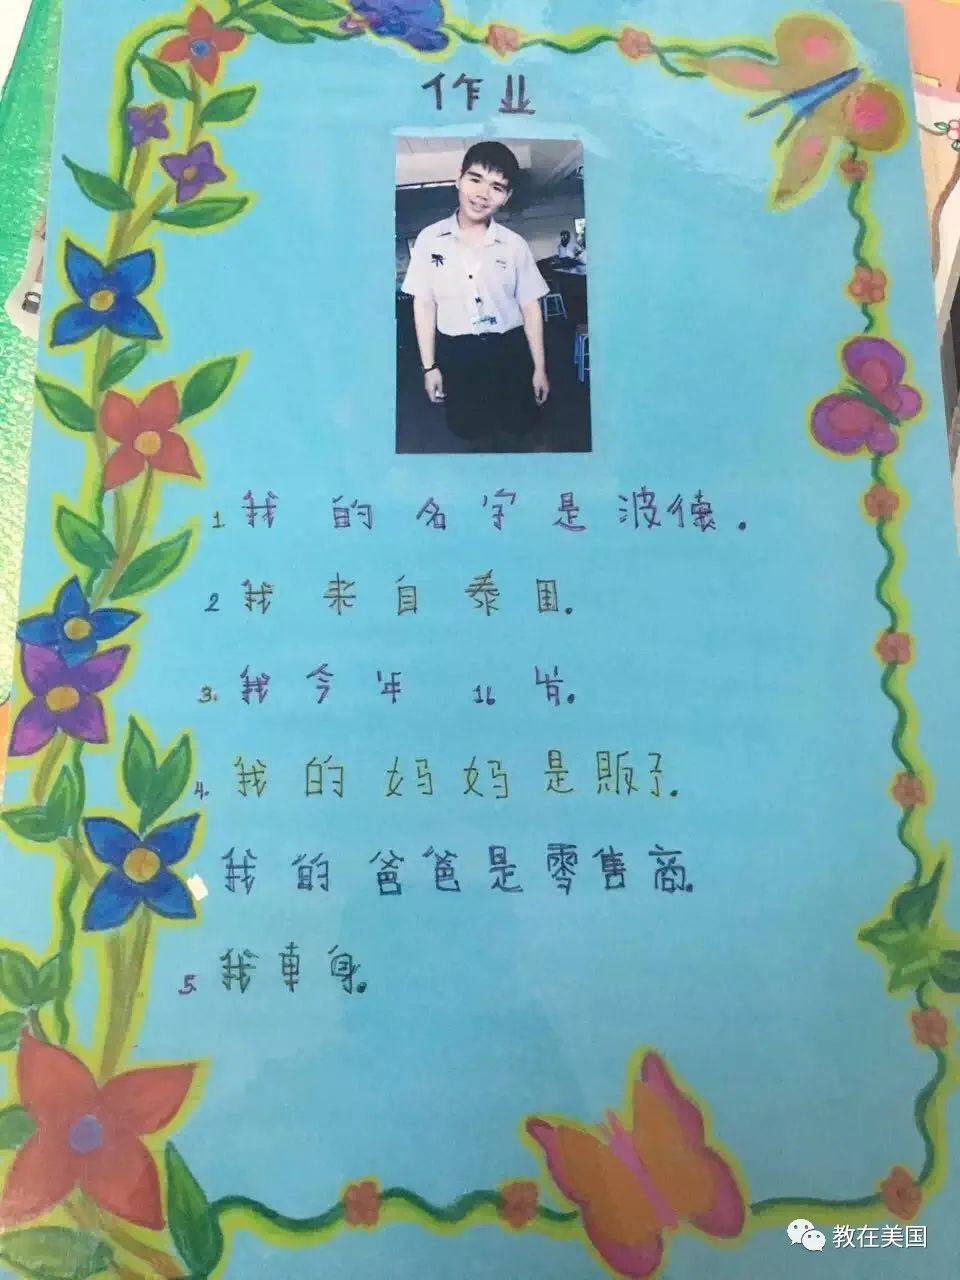 作业
1 我的名字是波德.
2 我来自泰国.
3. 我今年 16 岁.
4. 我的妈妈是販子.
我的爸爸是零售商.
5. 我車身.
教在美国